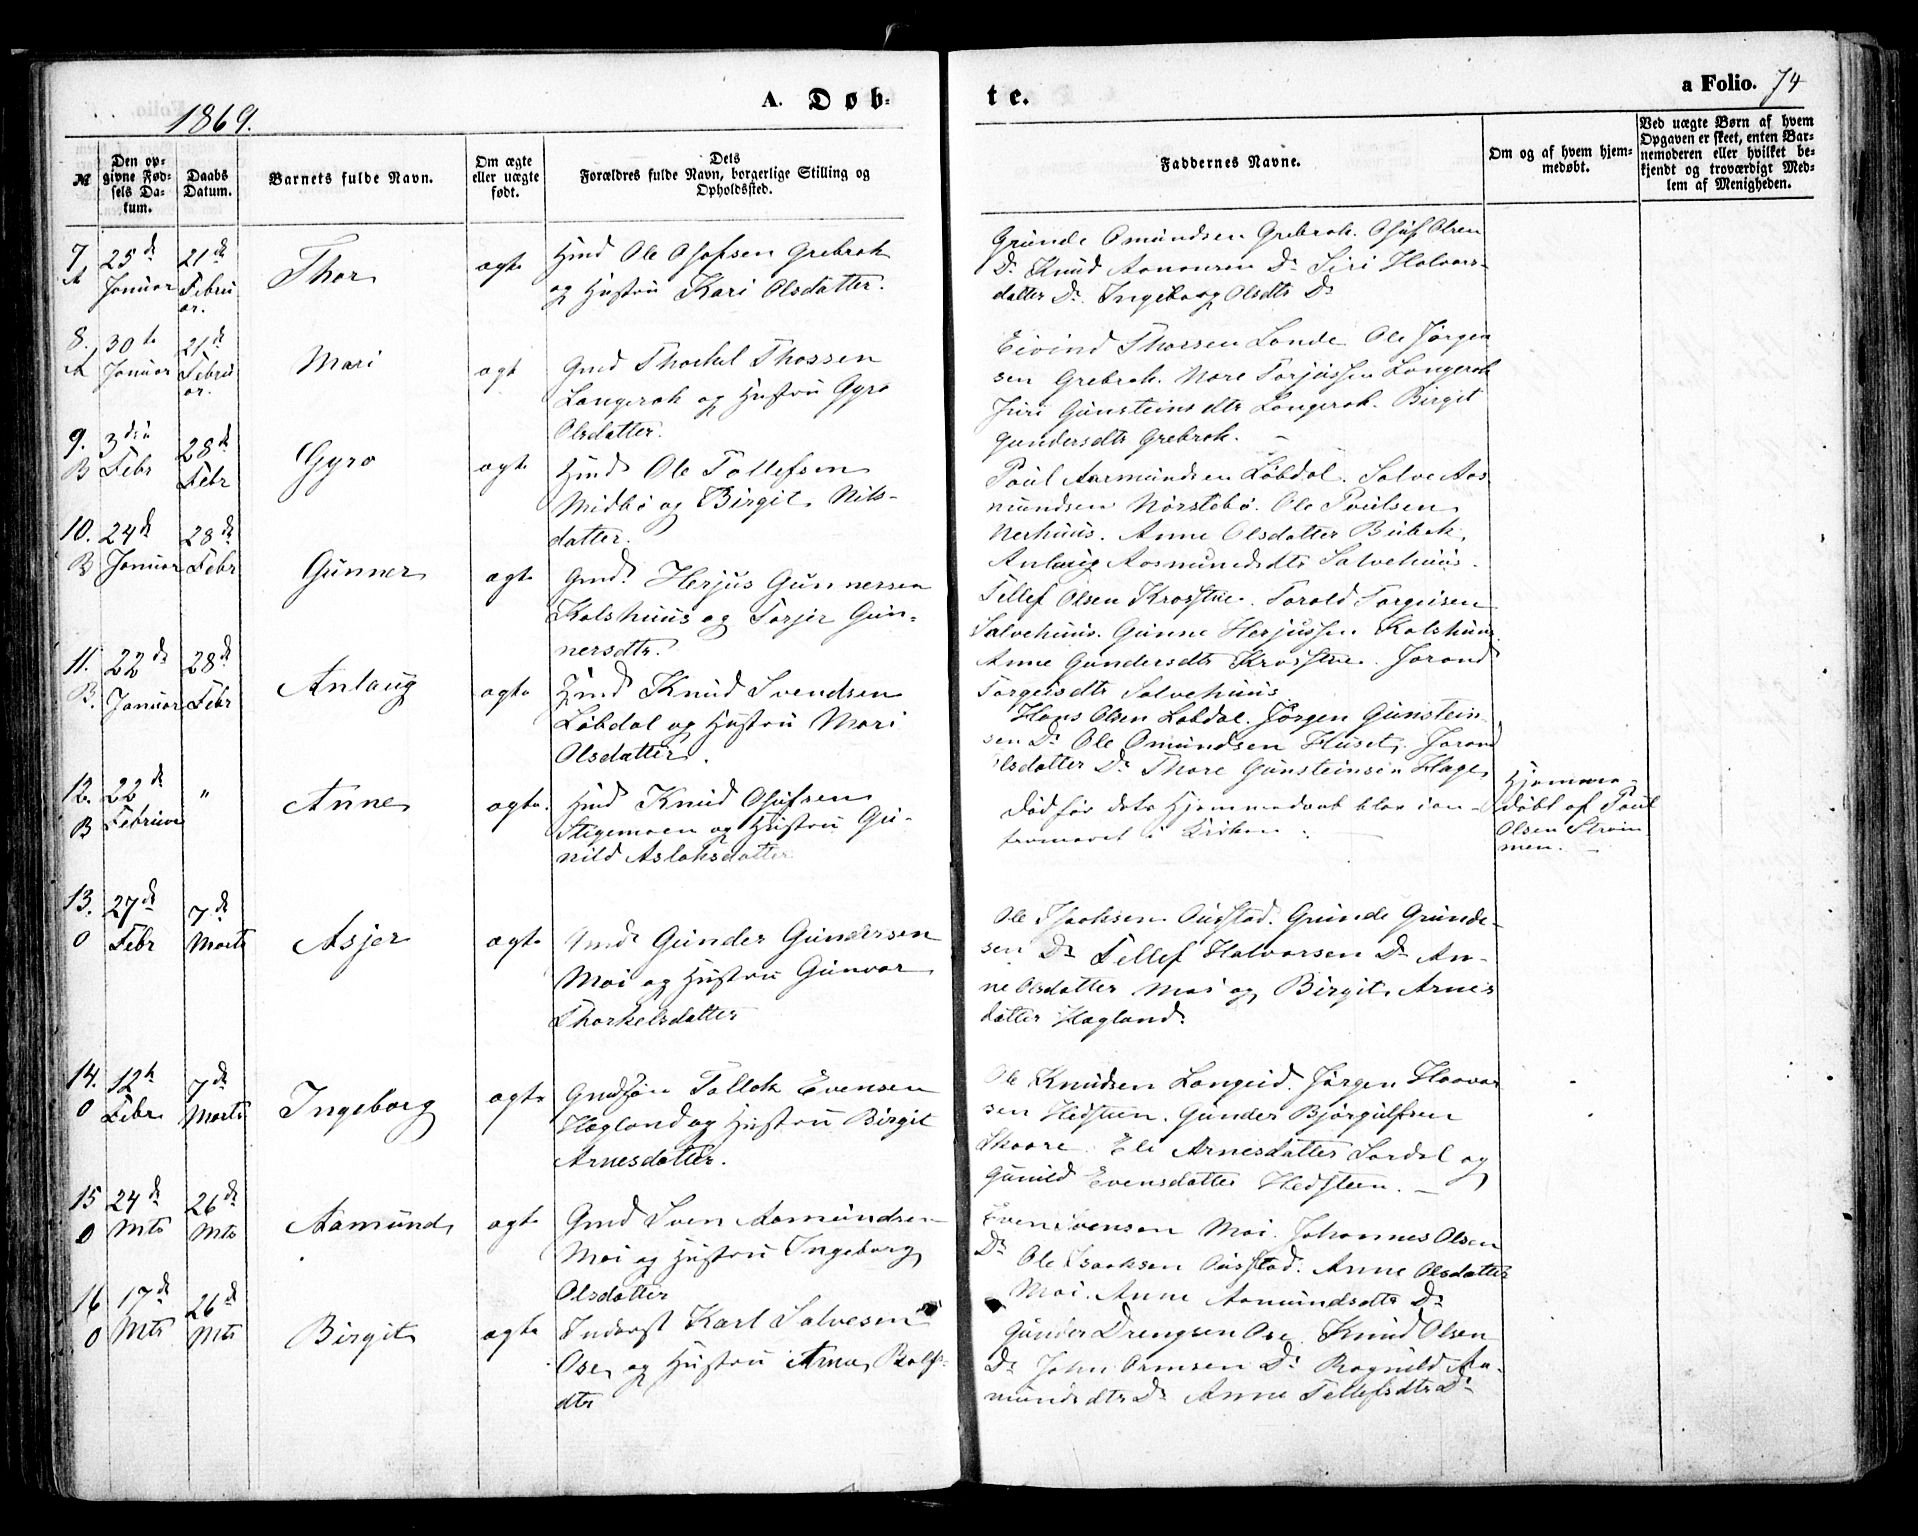 1869.
A. Døb-
te.
a Folio. 74
№
Den op-
givne Fød-
sels Da-
tum.
Daabs
Datum.
Barnets fulde Navn.
Om ægte
eller uægte
født.
Dets
Forældres fulde Navn, borgerlige Stilling og
Opholdssted.
Faddernes Navne.
Om og af hvem hjem-
medøbt.
Ved uægte Børn af hvem
Opgaven er skeet, enten Bar-
nemoderen eller hvilket be-
kjendt og troværdigt Med-
lem af Menigheden.
7 25de 21de
A Januar Febru
ar.
Thor
ægte
Hmd Ole Olofsen Grebrok
og Hustru Kari Olsdatter.
Grunde Omundsen Grebrok. Oluf Olsen
Do Knud Aanonsen Do Siri Halvors-
datter Do. Ingeborg Olsdtr Do
8. 30te 21de
A Januar Febru
ar.
Mari
ægt
Gmd Thorkel Thorssen
Langerak og Hustru Gyro
Olsdatter.
Eivind Thorssen Lande Ole Jørgen
sen Grebrok. Tore Torjussen Langerak
Siri Gunsteinsdtr Langerak. Birgit
Gundersdtr Grebrok. –
9. 3die 28de
B Febr Febr
Gyro
ægte
Hmd Ole Tollefsen
Midbø og Birgit Nils-
datter.
Poul Aasmundsen Løbdal. Salve Aas
mundsen Nørstebø. Ole Poulsen
Nerhuus. Anne Olsdatter Bubak
Anlaug Aasmundsdtr Salvehuus.
10. 24de 28de
B Januar Febr
Gunner
ægte
Gmd. Herjus Gunnersen
Kolshuus og Torjer Gun-
nersdtr.
Tellef Olsen Krosstue. Torold Torgeisen
Salvehuus. Gunne Herjussen Kolshuus
Anne Gundersdtr Krosstue. Jorand
Torgeisdtr Salvehuus
11. 22de 28de
B. Januar Febr
Anlaug
ægte
Hmd Knud Svendsen
Løbdal og Hustru Mari
Olsdatter.
Hans Olsen Løbdal. Jørgen Gunstein-
sen Do Ole Omundsen Huset. Jorand
Olsdatter Do Thore Gunsteinsen Hage
12. 22de "
B Februar
Anne
ægte.
Hmd Knud Olufsen
Stigemoen og Hustru Gu-
nild Aslaksdatter
Død før dets Hjemmedaab blev con-
firmeret i Kirken.
Hjemme-
døbt af Poul
Olsen Strøm
men. –
13. 27de 7de
O Febr Marts
Asjer
ægte
Gmd Gunder Gundersen
Moi og Hustru Gunvor
Thorkelsdatter
Ole Isaaksen Ousstad. Grunde Grunde-
sen Do Tellef Halvorsen Do An-
ne Olsdatter Moi og Birgit Arnes
datter Hægland.
14. 12te 7de
O Febr Marts
Ingeborg
ægte
Gmdsøn Tallak Evensen
Hægland og Hustru Birgit
Arnesdatter.
Ole Knudsen Langeid. Jørgen Haavor
sen Hedsteen. Gunder Bjørgulfsen
Skaare. Eli Arnesdatter Sordal og
Gunild Evensdatter Hedsteen. –
15 24de 26de
O Mts Mts
Aamund
ægte
Gmd Sven Aamundsen
Moi og Hustru Ingeborg
Olsdatter
Even Svensen Moi. Johannes Olsen
Do Ole Isaaksen Ousstad. Anne Olsdatter
Moi. Anne Aamundsdtr Do
16 17de 26de
O Mts Mts
Birgit
ægte
Inderst Karl Salvesen
Ose og Hustru Anne Rolfs-
dtr
Gunder Drengsen Ose. Knud Olsen
Do John Ormsen Do Ragnild Aa-
mundsdtr Do Anne Tellefsdtr Do